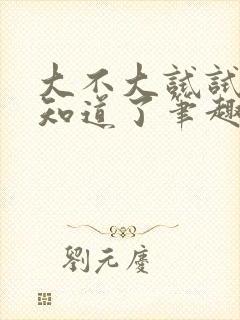 大不大試試
知道了筆趣
劉元慶